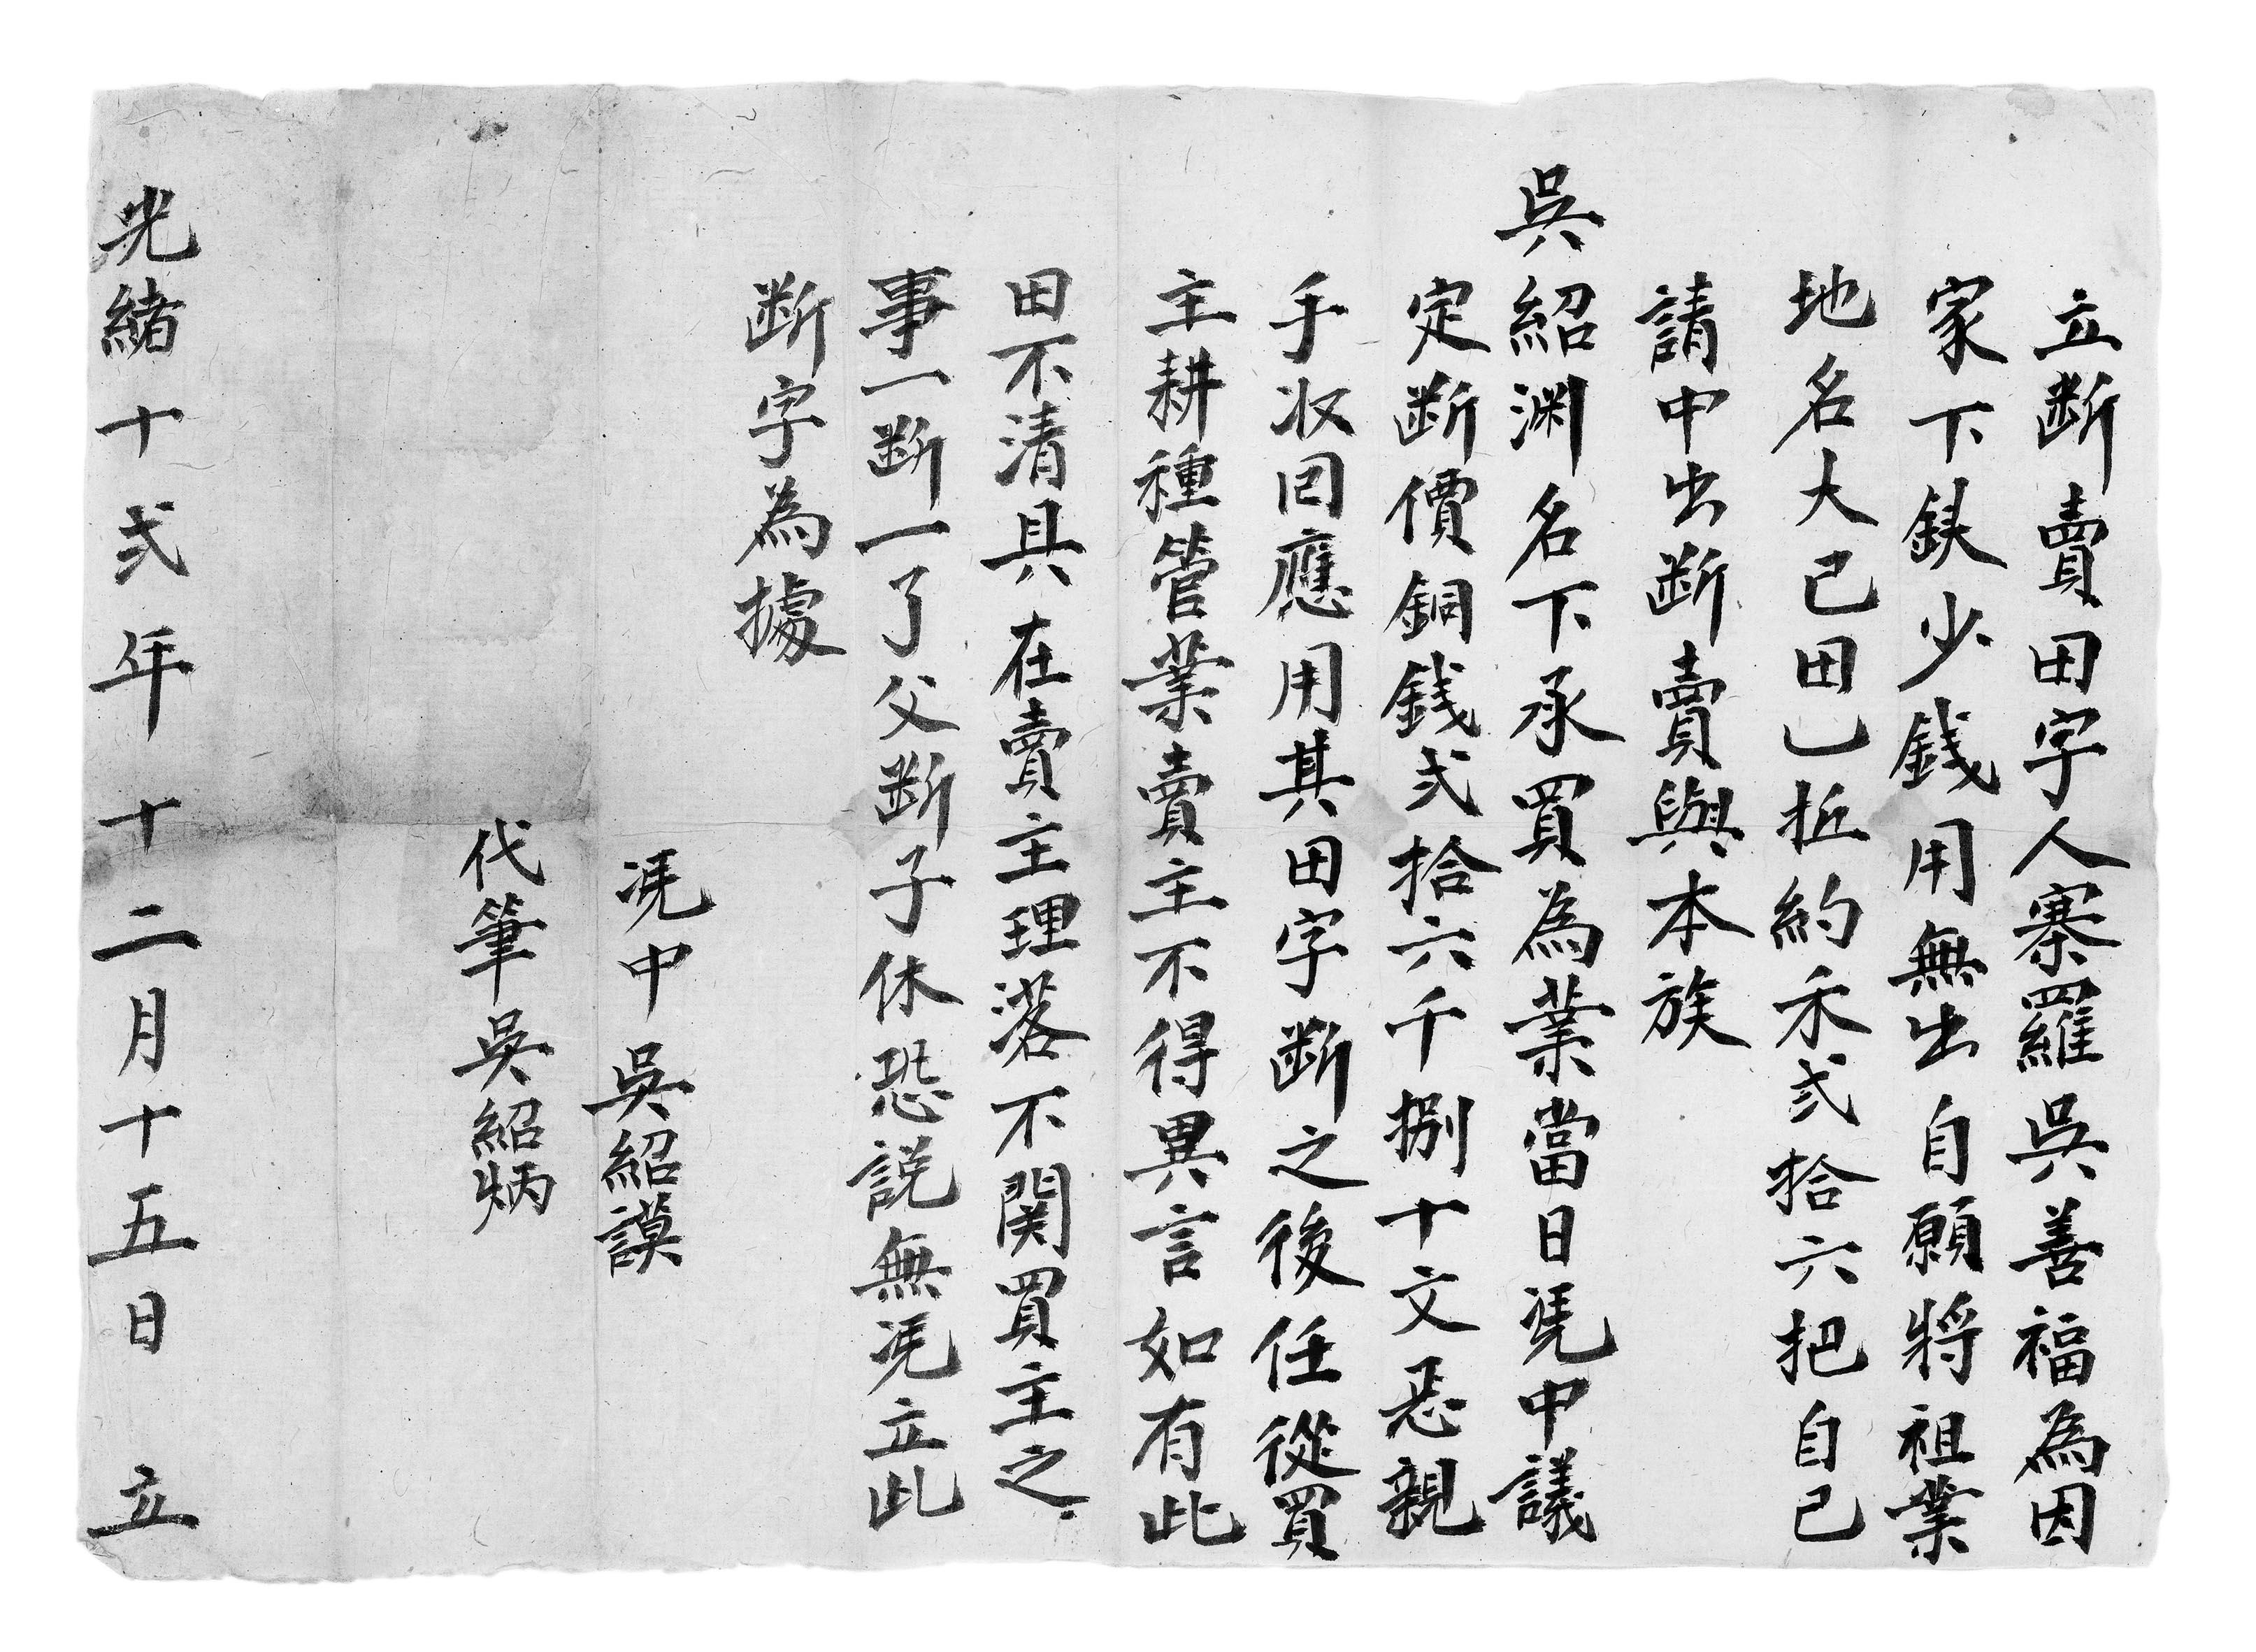 立断賣田字人寨羅吳善福為因
家下鈌少錢用無出自願將祖業
地名大己田乚坵約禾弍拾六把自己
請中出断賣與本族
吳紹渊名下承買為業當日凴中議
定断價銅錢弍拾六千捌十文忌親
手收囘應用其田字断之後任從買
主耕種管業賣主不得異言如有此
田不清具在賣主理落不関買主之
事一断一了父断子休恐説無凴立此
断字為據
凴中吳紹謨
代筆吳紹炳
光緒十弍年十二月十五日立